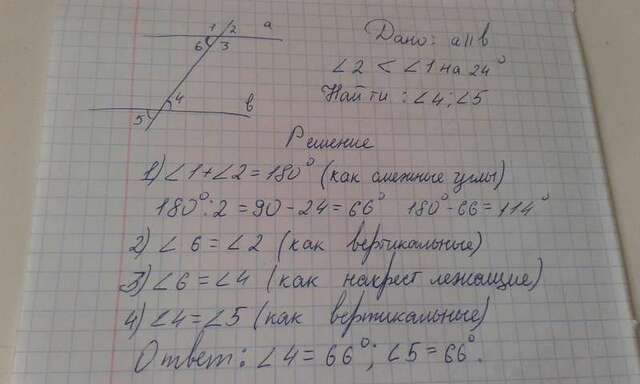 1 2 a
6 3
4
5 в
Дано: a||в
∠2 < ∠1 на 24°
Найти: ∠4; ∠5
Решение
1) ∠1+∠2=180° (как смежные углы)
180°:2=90-24=66° 180°-66=114°
2) ∠6=∠2 (как вертикальные)
3) ∠6=∠4 (как накрест лежащие)
4) ∠4=∠5 (как вертикальные)
Ответ: ∠4=66°; ∠5=66°.